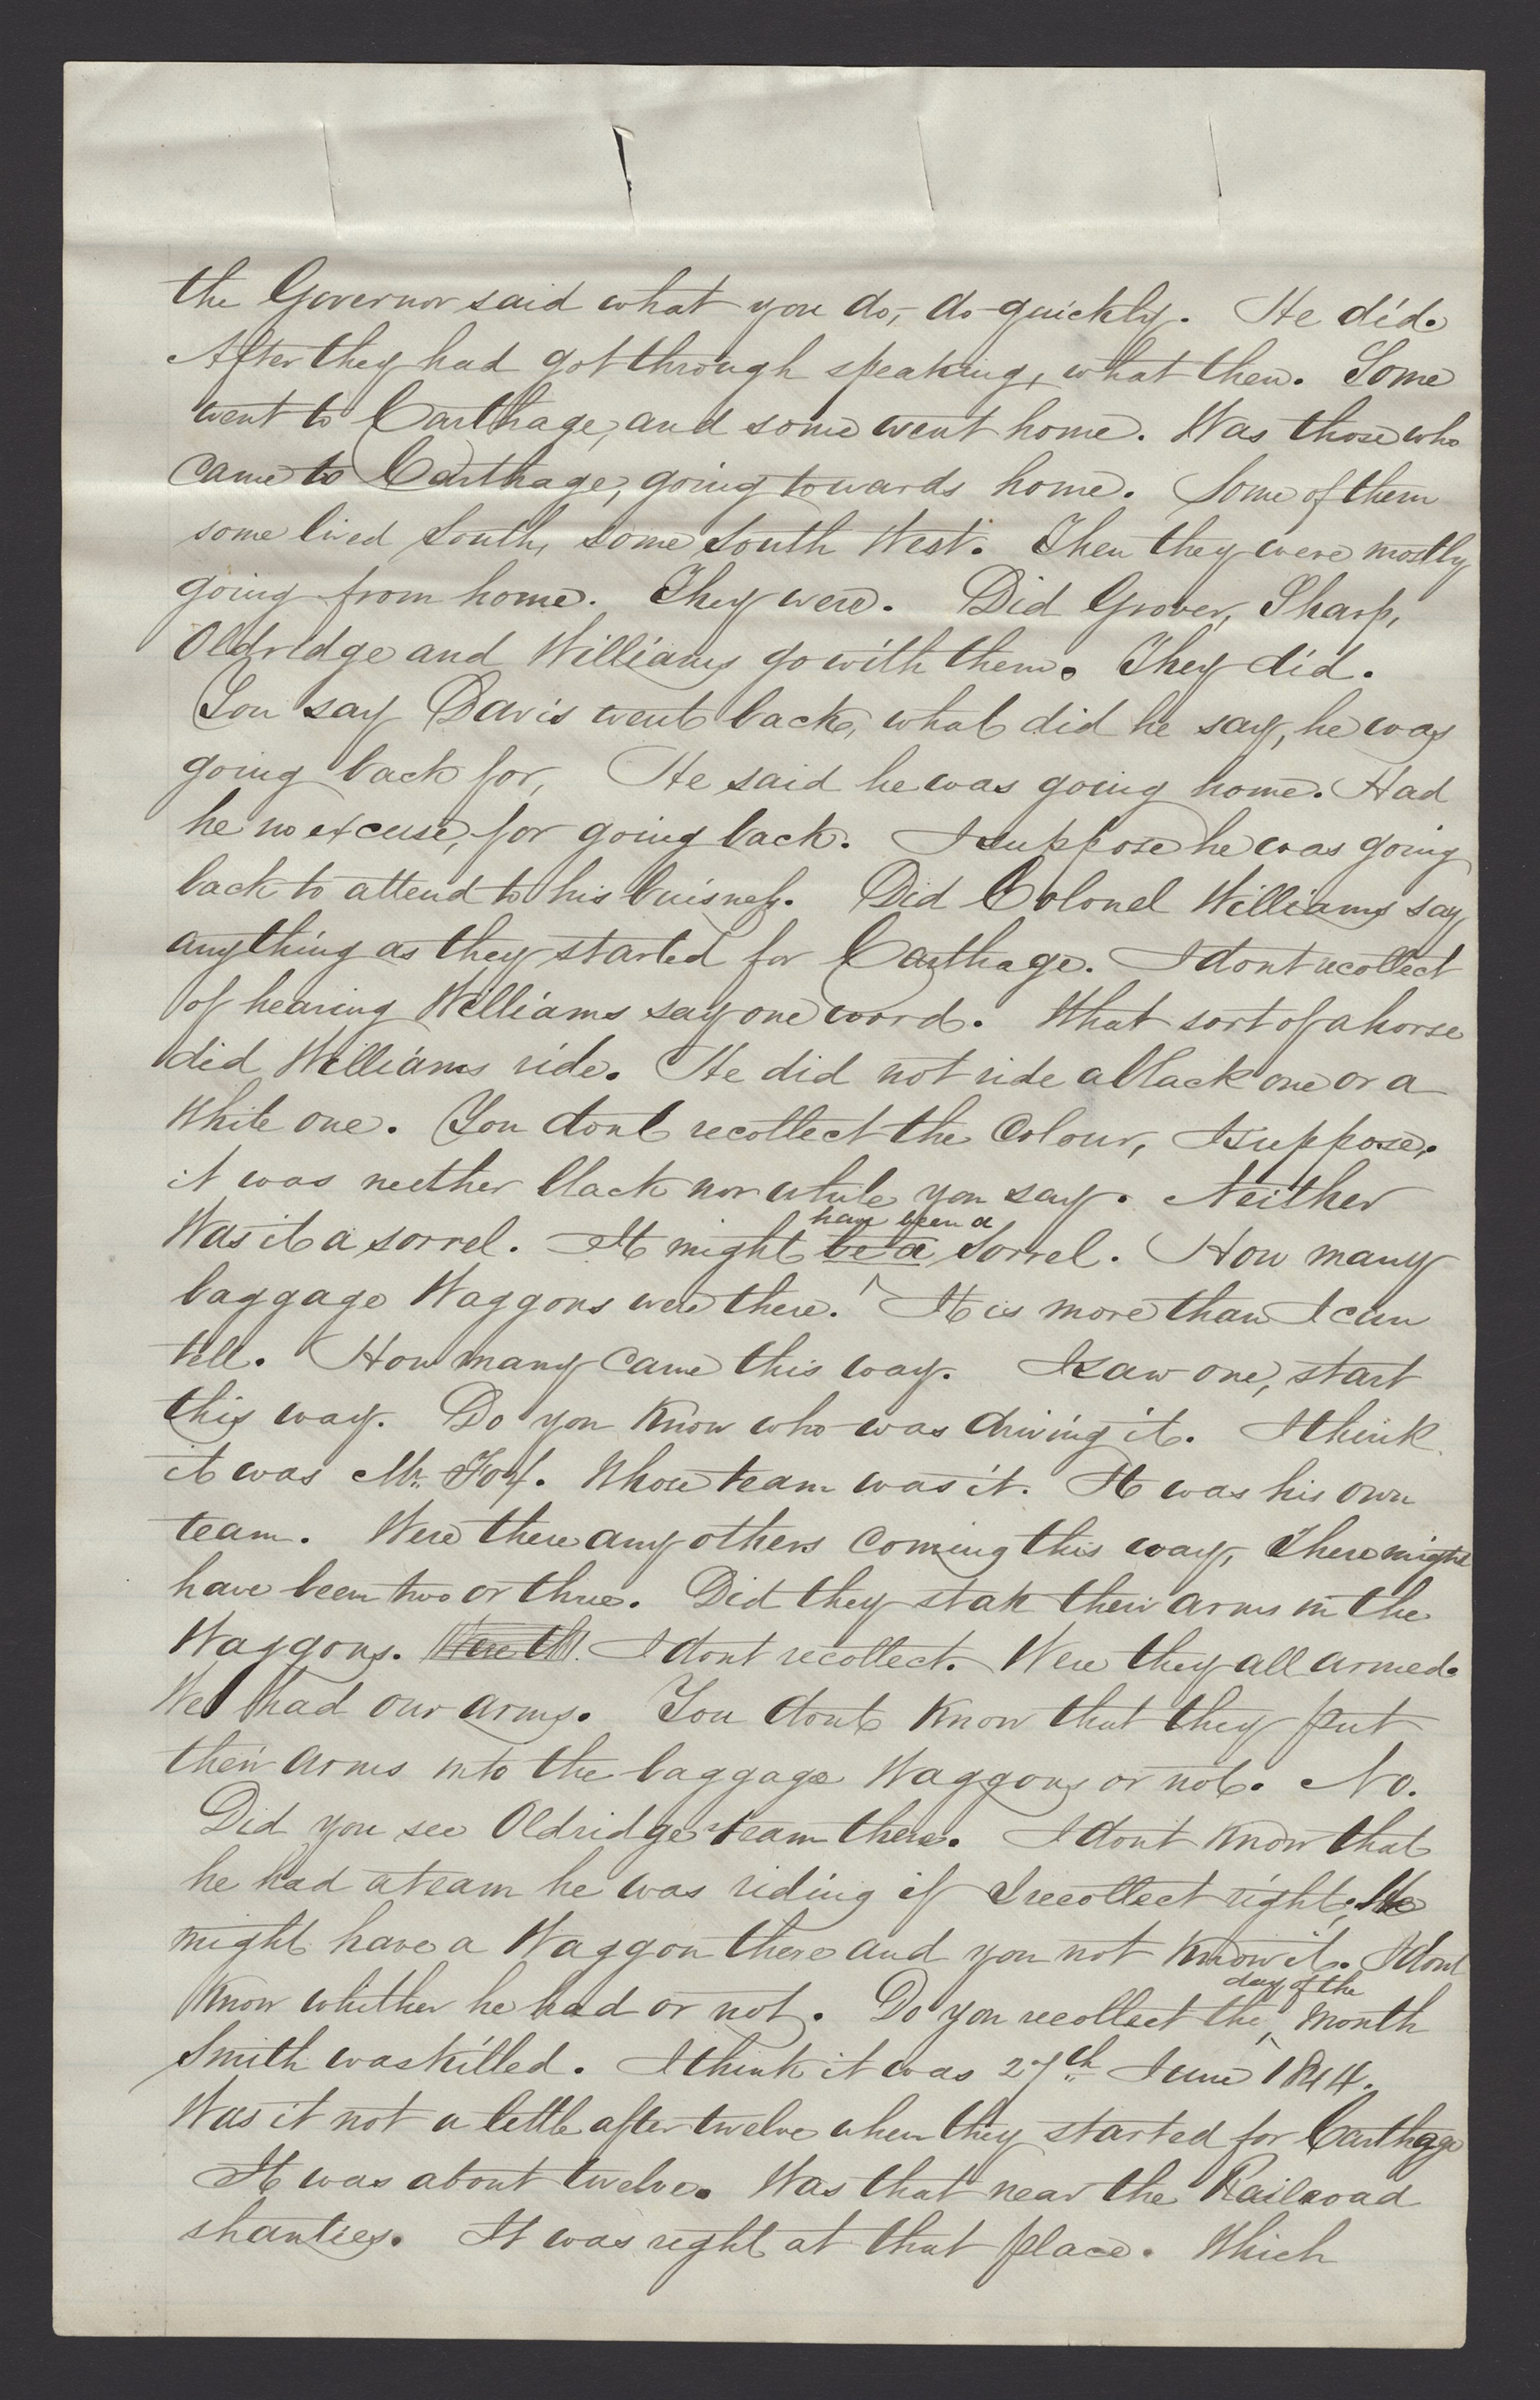 the Governor said what you do, do quickly. He did.
After they had got through speaking, what then. Some
went to Carthage, and some went home. Was those who
came to Carthage, going towards home. Some of them
some lived South, some South West. Then they were mostly
going from home. They were. Did Grover, Sharp,
Oldridge and Williams go with them. They did.
You say Davis went back, what did he say, he was
going back for, He said he was going home. Had
he no excuse, for going back. I suppose he was going
back to attend to his buisness. Did Colonel Williams say
anything as they started for Carthage. I dont recollect
of hearing Williams say one word. What sort of a horse
did Williams ride. He did not ride a black one or a
White one. You dont recollect the Colour, I suppose.
it was neither black nor white you say. Neither
have been a
Was it a sorrel. It might be a Sorrel. How many
baggage Waggons were there. It is more than I can
tell. How many came this way. I saw one, start
this way. Do you Know who was driving it. I think
it was Mr. Fox. Whose team was it. It was his own
team. Were there any others coming this way, There might
have been two or three. Did they stak their arms in the
Waggons. Were th I dont recollect. Were they all armed.
We had our arms. You dont Know that they put
their arms into the baggage Waggons or not. No.
Did you see Oldridge team there. I dont Know that
he had a team he was riding if I recollect right, He
might have a Waggon there and you not Know it. I dont
day of the
Know whither he had or not. Do you recollect the month
Smith was killed. I think it was 27th June 1844.
Was it not a little after twelve when they started for Carthage
It was about twelve. Was that near the Railroad
shanties. It was right at that place. Which